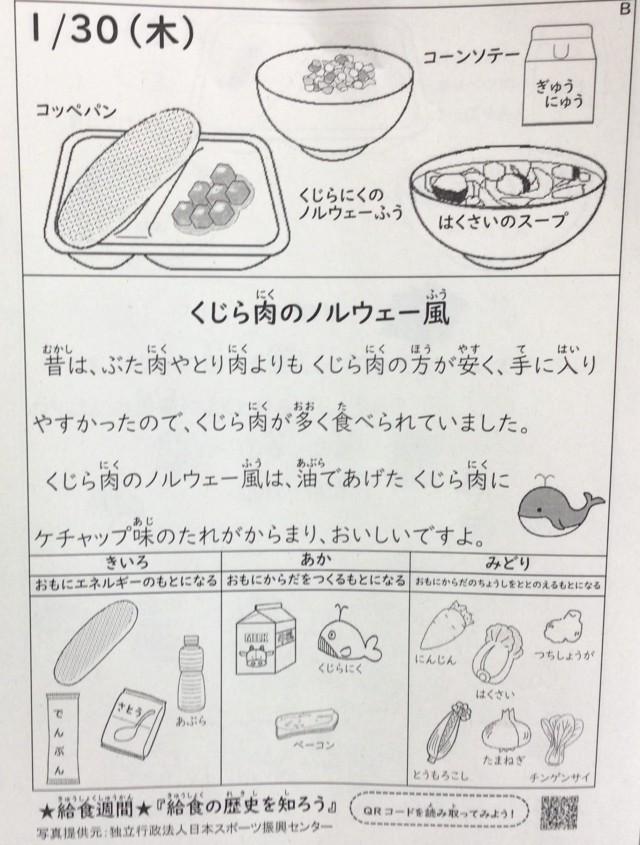 B
1/30(木)
コーンソテー
ぎゅう
にゅう
コッペパン
くじらにくの
ノルウェーふう
はくさいのスープ
くじら肉のノルウェー風
昔は、ぶた肉やとり肉よりも くじら肉の方が安く、手に入り
やすかったので、くじら肉が多く食べられていました。
くじら肉のノルウェー風は、油であげた くじら肉に
ケチャップ味のたれがからまり、おいしいですよ。
きいろ
あか
みどり
おもにエネルギーのもとになる
おもにからだをつくるもとになる
おもにからだのちょうしをととのえるもとになる
でんぷん
さとう
あぶら
MILK
くじらにく
ベーコン
にんじん
はくさい
つちしょうが
とうもろこし
たまねぎ
チンゲンサイ
★給食週間★『給食の歴史を知ろう』
写真提供元:独立行政法人日本スポーツ振興センター
QRコードを読み取ってみよう!